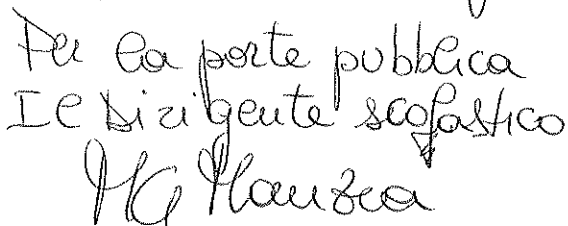 Per la parte pubblica
Il Dirigente scolastico